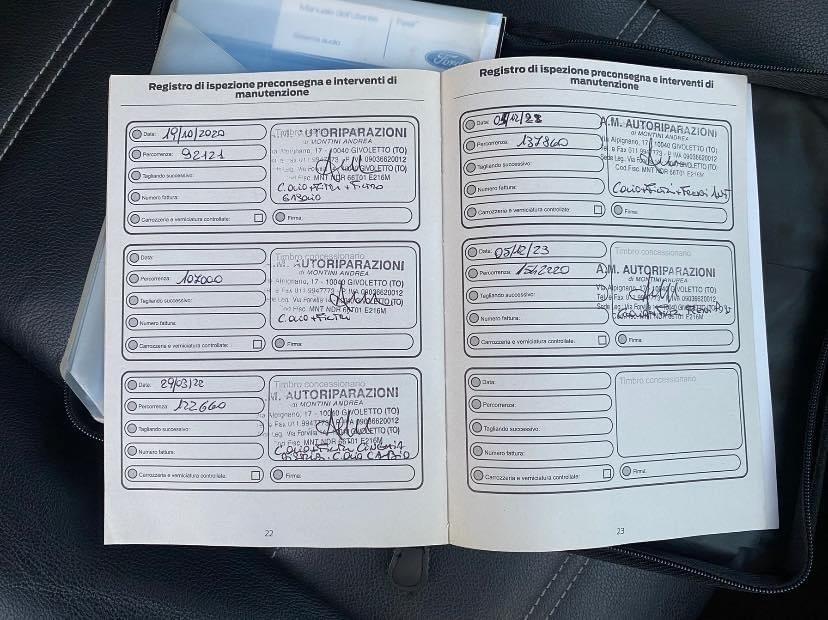 Manuale dell'utente
Sistema audio
Ford
Registro di ispezione preconsegna e interventi di
manutenzione
Data: 19/10/2020
Percorrenza: 92121
Tagliando successivo:
Numero fattura:
Carrozzeria e verniciatura controllate:
Timbro
A.M. AUTORIPARAZIONI
di MONTINI ANDREA
Via Alpignano, 17 - 10040 GIVOLETTO (TO)
Tel. e Fax 011.9947773 - P. IVA 09036620012
Cod. Fisc. MNT NDR 66T01 E216M
C. OLIO + FILTRI + FILTRO
GASOLIO
Firma:
Data:
Percorrenza: 107000
Tagliando successivo:
Numero fattura:
Carrozzeria e verniciatura controllate:
Timbro concessionario
.M. AUTORIPARAZIONI
di MONTINI ANDREA
Alpignano, 17 - 10040 GIVOLETTO (TO)
Fax 011.9947773 - P. IVA 09036620012
Leg. Via
Cod. Fisc. MNT NDR 66T01 E216M
C. OLIO + FILTRI
Firma:
Data: 29/03/22
Percorrenza: 122660
Tagliando successivo:
Numero fattura:
Carrozzeria e verniciatura controllate:
Timbro concessionario
M. AUTORIPARAZIONI
di MONTINI ANDREA
Alpignano, 17 - 10040 GIVOLETTO (TO)
P. IVA 09036620012
Leg. Via
GIVOLETTO (TO)
Cod. Fisc. MNT NDR 66T01 E216M
C. OLIO + FILTRI CINGHIA
C. OLIO CAMBIO
Firma:
22
Registro di ispezione preconsegna e interventi di
manutenzione
Data:
Percorrenza: 137860
Tagliando successivo:
Numero fattura:
Carrozzeria e verniciatura controllate:
A.M. AUTORIPARAZIONI
di MONTINI ANDREA
Via Alpignano, 17 - 10040 GIVOLETTO (TO)
Tel. e Fax 011.9947773 - P. IVA 09036620012
Sede Leg. Via
Cod. Fisc. MNT NDR 66T01 E216M
C. OLIO + FILTRI + FRENI ANT
Firma:
Data: 05/12/23
Percorrenza: 1542220
Tagliando successivo:
Numero fattura:
Carrozzeria e verniciatura controllate:
Timbro concessionario
A.M. AUTORIPARAZIONI
di MONTINI ANDREA
Via Alpignano, 17 - 10040 GIVOLETTO (TO)
Tel. e Fax 011.9947773 - P. IVA 09036620012
Sede Leg. Via
Cod. Fisc. MNT NDR 66T01 E216M
Firma:
Data:
Percorrenza:
Tagliando successivo:
Numero fattura:
Carrozzeria e verniciatura controllate:
Timbro concessionario
Firma:
23